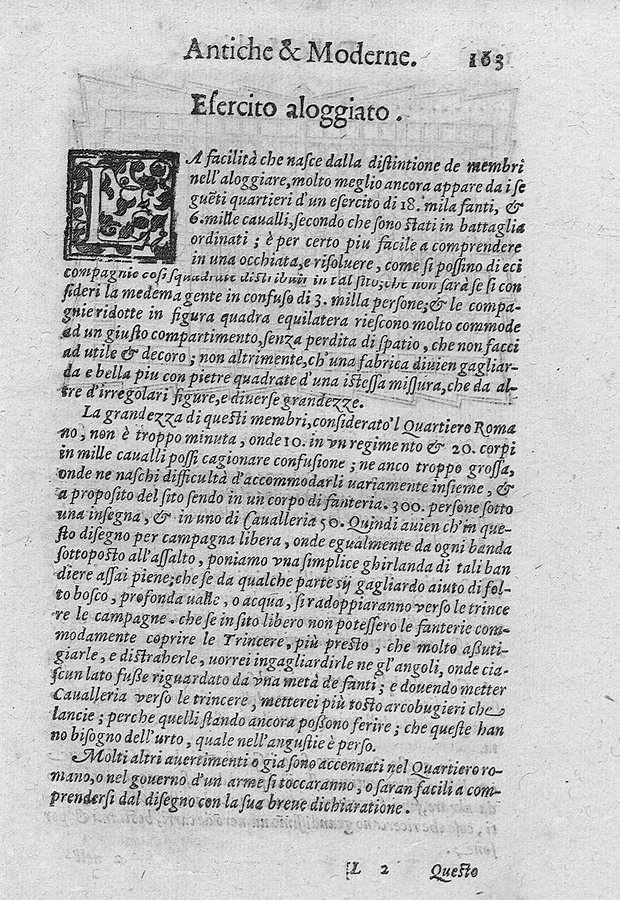 Antiche & Moderne. 163
Esercito aloggiato.
LA facilità che nasce dalla distintione de membri
nell'aloggiare, molto meglio ancora appare da i se
guēti quartieri d'un esercito di 18. mila fanti, &
6. mille cavalli, secondo che sono stati in battaglia
ordinati; è per certo piu facile a comprendere
in una occhiata, e risoluere, come si possino di eci
compagnie così squadrate distribuir in tal sito, che non sarà se si con
sideri la medema gente in confuso di 3. milla persone; & le compa-
gnie ridotte in figura quadra equilatera riescono molto commode
ad un giusto compartimento, senza perdita di spatio, che non facci
ad utile & decoro; non altrimente, ch'una fabrica diuien gagliar-
da e bella piu con pietre quadrate d'una istessa missura, che da al-
tre d'irregolari figure, e diverse grandezze.
La grandezza di questi membri, considerato'l Quartiero Roma
no, non è troppo minuta, onde 10. in vn regimento & 20. corpi
in mille cavalli possi cagionare confusione; ne anco troppo grossa,
onde ne naschi difficultà d'accommodarli uariamente insieme, &
a proposito del sito sendo in un corpo di fanteria. 300. persone sotto
una insegna, & in uno di Cavalleria 50. Quindi auien ch'in que-
sto disegno per campagna libera, onde egualmente da ogni banda
sottoposto all'assalto, poniamo vna simplice ghirlanda di tali ban
diere assai piene; che se da qualche parte sÿ gagliardo aiuto di fol-
to bosco, profonda ualle, o acqua, si radoppiaranno verso le trince
re le campagne. che se in sito libero non potessero le fanterie com-
modamente coprire le Trincere, più presto, che molto assuti-
giarle, e distraherle, uorrei ingagliardirle ne gl'angoli, onde cia-
scun lato fusse riguardato da vna metà de fanti; e douendo metter
Cavalleria verso le trincere, metterei più tosto arcobugieri che
lancie; perche quelli stando ancora possono ferire; che queste han
no bisogno dell'urto, quale nell'angustie è perso.
Molti altri auertimenti o gia sono accennati nel Quartiero ro-
mano, o nel governo d'un arme si toccaranno, o saran facili a com-
prendersi dal disegno con la sua breue dichiaratione.
L 2 Questo